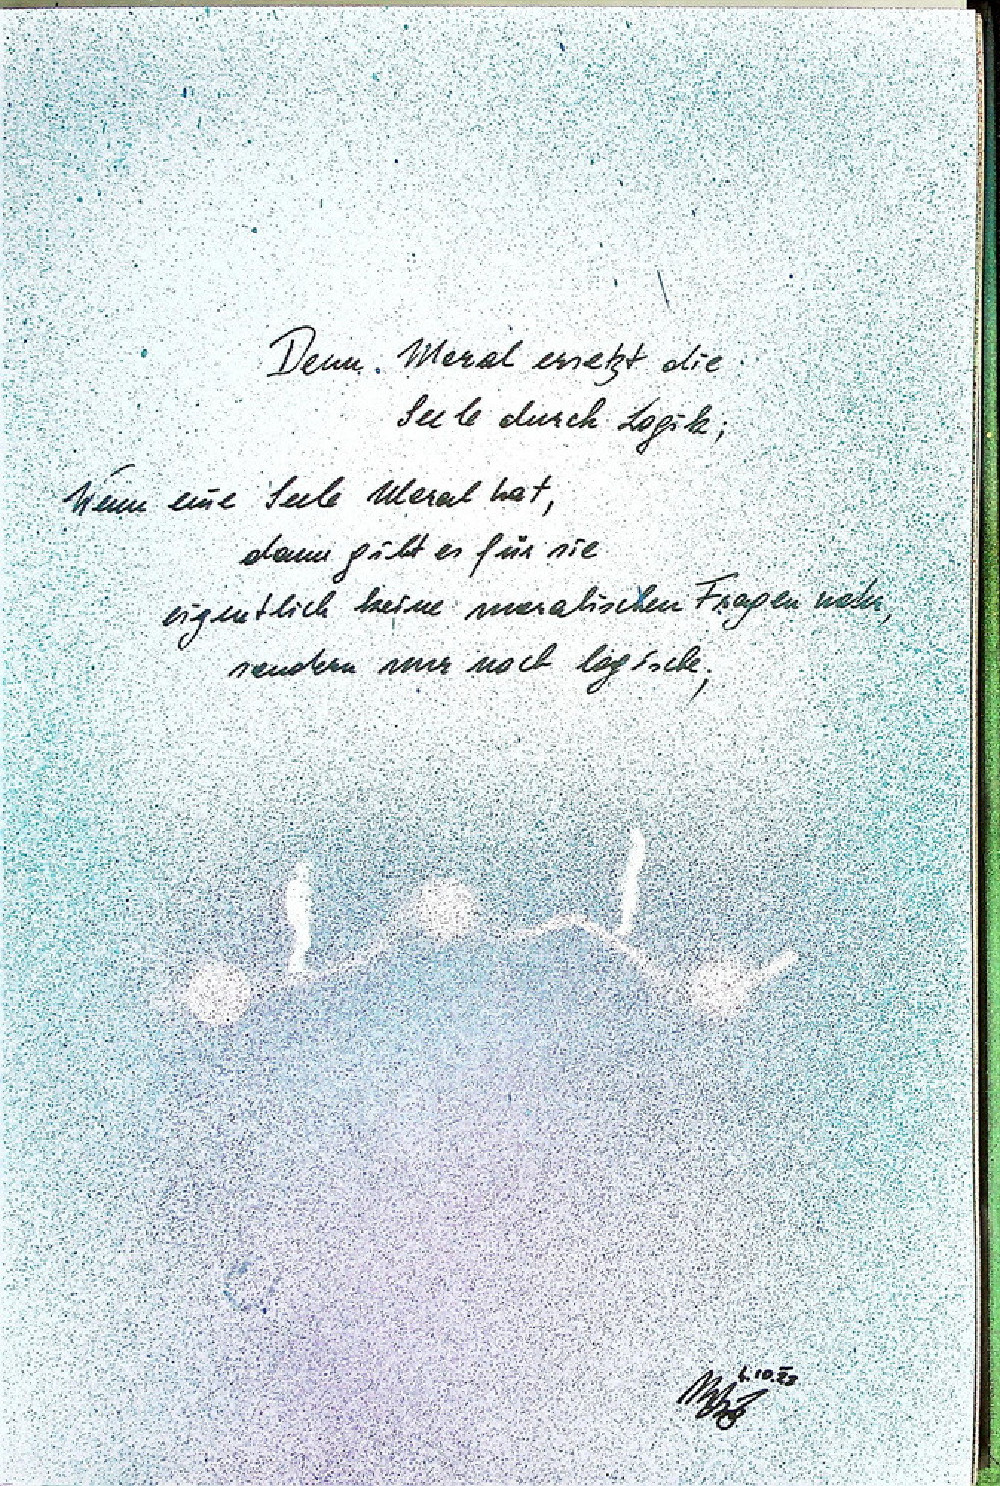 Denn Moral ersetzt die
Seele durch Logik;
Wenn eine Seele Moral hat,
dann gibt es für sie
eigentlich keine moralischen Fragen mehr,
sondern nur noch logische;
10.23